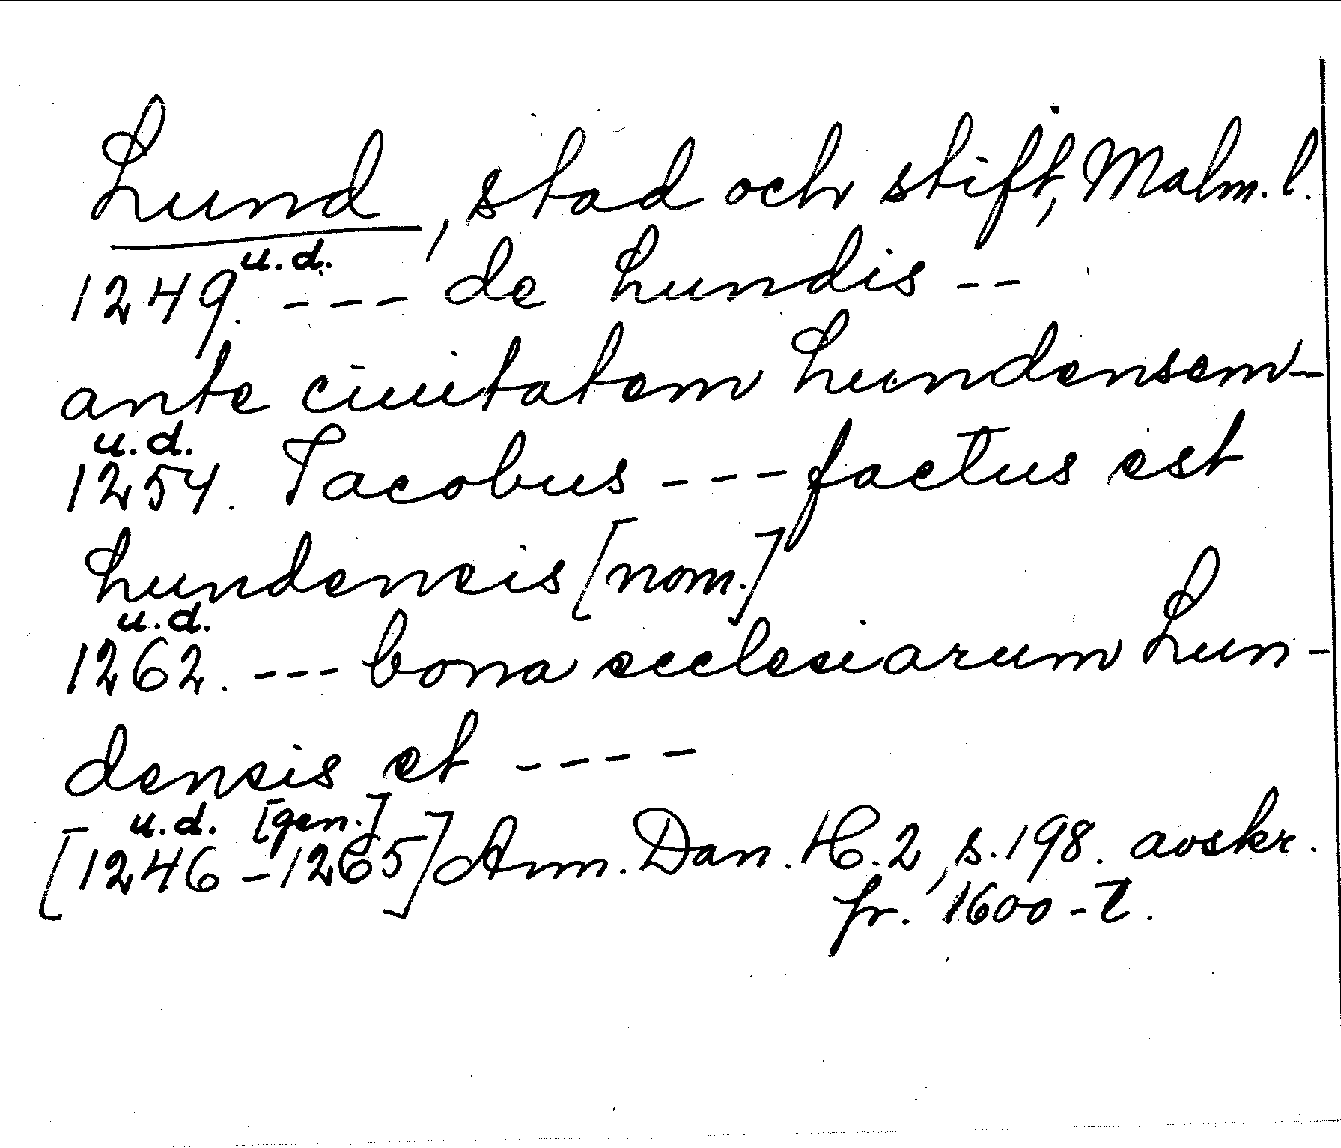 Lund, stad och stift, Malm. l.
u.d.
1249. --- de Lundis --
ante ciuitatem Lundensem-
u.d.
1254. Jacobus --- factus est
Lundencis [nom.]
u.d.
1262. --- bona ecclesiarum Lun-
dencis et ----
u.d. [gen.]
[1246-1265] Ann. Dan. H. 2, s. 198. avskr.
fr. 1600-t.